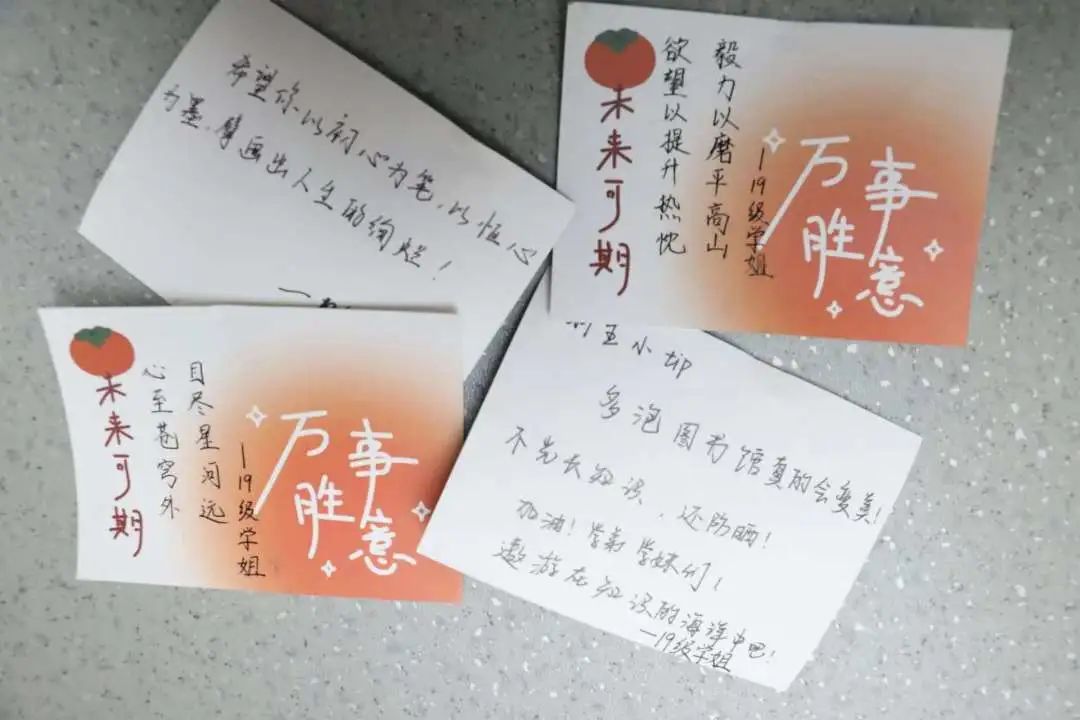 希望你以初心为笔，以恒心
为墨，擘画出人生的绚烂！
未来可期
欲望以提升热忱
毅力以磨平高山
—19级学姐
万事
胜意
未来可期
心至苍穹外
目尽星河远
—19级学姐
万事
胜意
小tip
多泡图书馆真的会变美！
不光长知识，还防晒！
加油！学弟学妹们！
遨游在知识的海洋中吧！
—19级学姐